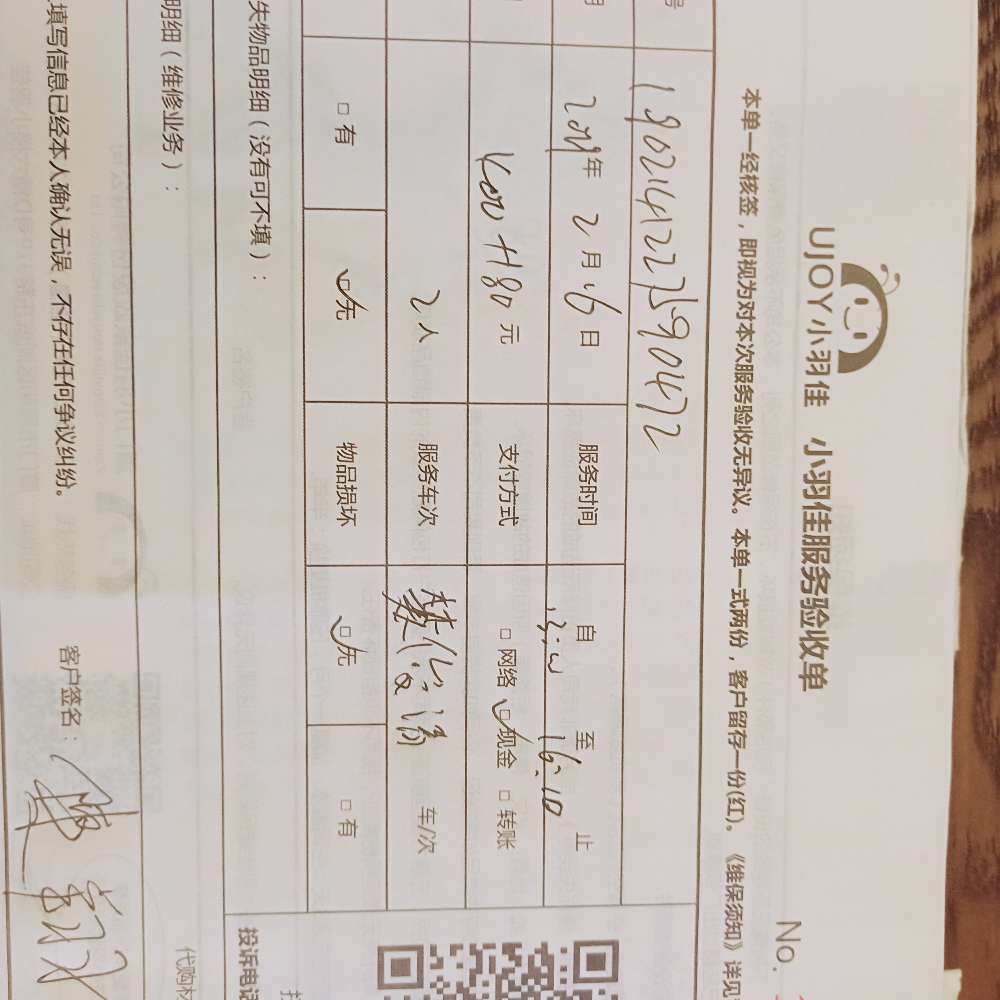 UJOY小羽佳 小羽佳服务验收单
No.
本单一经核签，即视为对本次服务验收无异议。本单一式两份，客户留存一份(红)。《维保须知》详见
号 1902141227590472
2019年2月16日 服务时间 自 至 16:10 止
+180元 支付方式 □网络 ☑现金 □转账
2人 服务车次 车/次
□有 ☑无 物品损坏 ☑无 □有
失物品明细（没有可不填）：
投诉电话
明细（维修业务）：
代购材
填写信息已经本人确认无误，不存在任何争议纠纷。 客户签名：